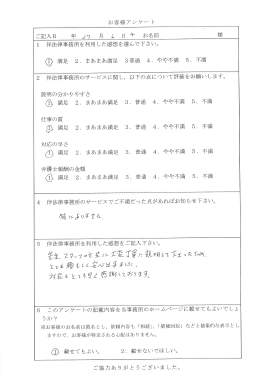 お客様アンケート
ご記入日 年 月 日 お名前 様
1 伴法律事務所を利用した感想を選んで下さい。
① 満足 2、まあまあ満足 3普通 4、やや不満 5、不満
2 伴法律事務所のサービスに関し、以下の点について評価をお願いします。
説明の分かりやすさ
① 満足 2、まあまあ満足 3、普通 4、やや不満 5、不満
仕事の質
① 満足 2、まあまあ満足 3、普通 4、やや不満 5、不満
対応の早さ
① 満足 2、まあまあ満足 3、普通 4、やや不満 5、不満
弁護士報酬の金額
① 満足 2、まあまあ満足 3、普通 4、やや不満 5、不満
4 伴法律事務所のサービスでご不満だった点があればお知らせ下さい。
特にありません
5 伴法律事務所を利用した感想をご記入下さい。
先生、スタッフの方共に大変丁寧に説明して下さったため、
とても安心出来ました。
対応もとても早く感謝しております。
6 このアンケートの記載内容を当事務所のホームページに載せてもよいでしょうか？
※お客様のお名前は匿名とし、依頼内容も「相続」、「債権回収」などと抽象的な表示としますので、お客様が特定される心配はありません。
① 載せてもよい。 2、載せないでほしい。
ご協力ありがとうございました。